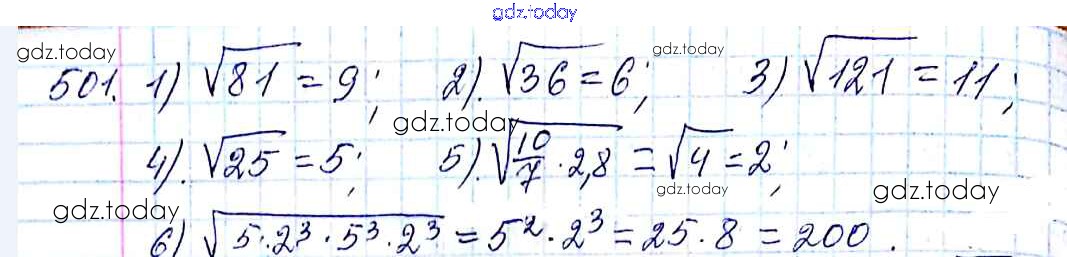 gdz.today
gdz.today gdz.today
501. 1) √81 = 9; 2). √36 = 6; 3) √121 = 11;
gdz.today
4). √25 = 5; 5). √(10/7 · 2,8) = √4 = 2;
gdz.today gdz.today
gdz.today
6) √(5·2³·5³·2³) = 5²·2³ = 25·8 = 200.